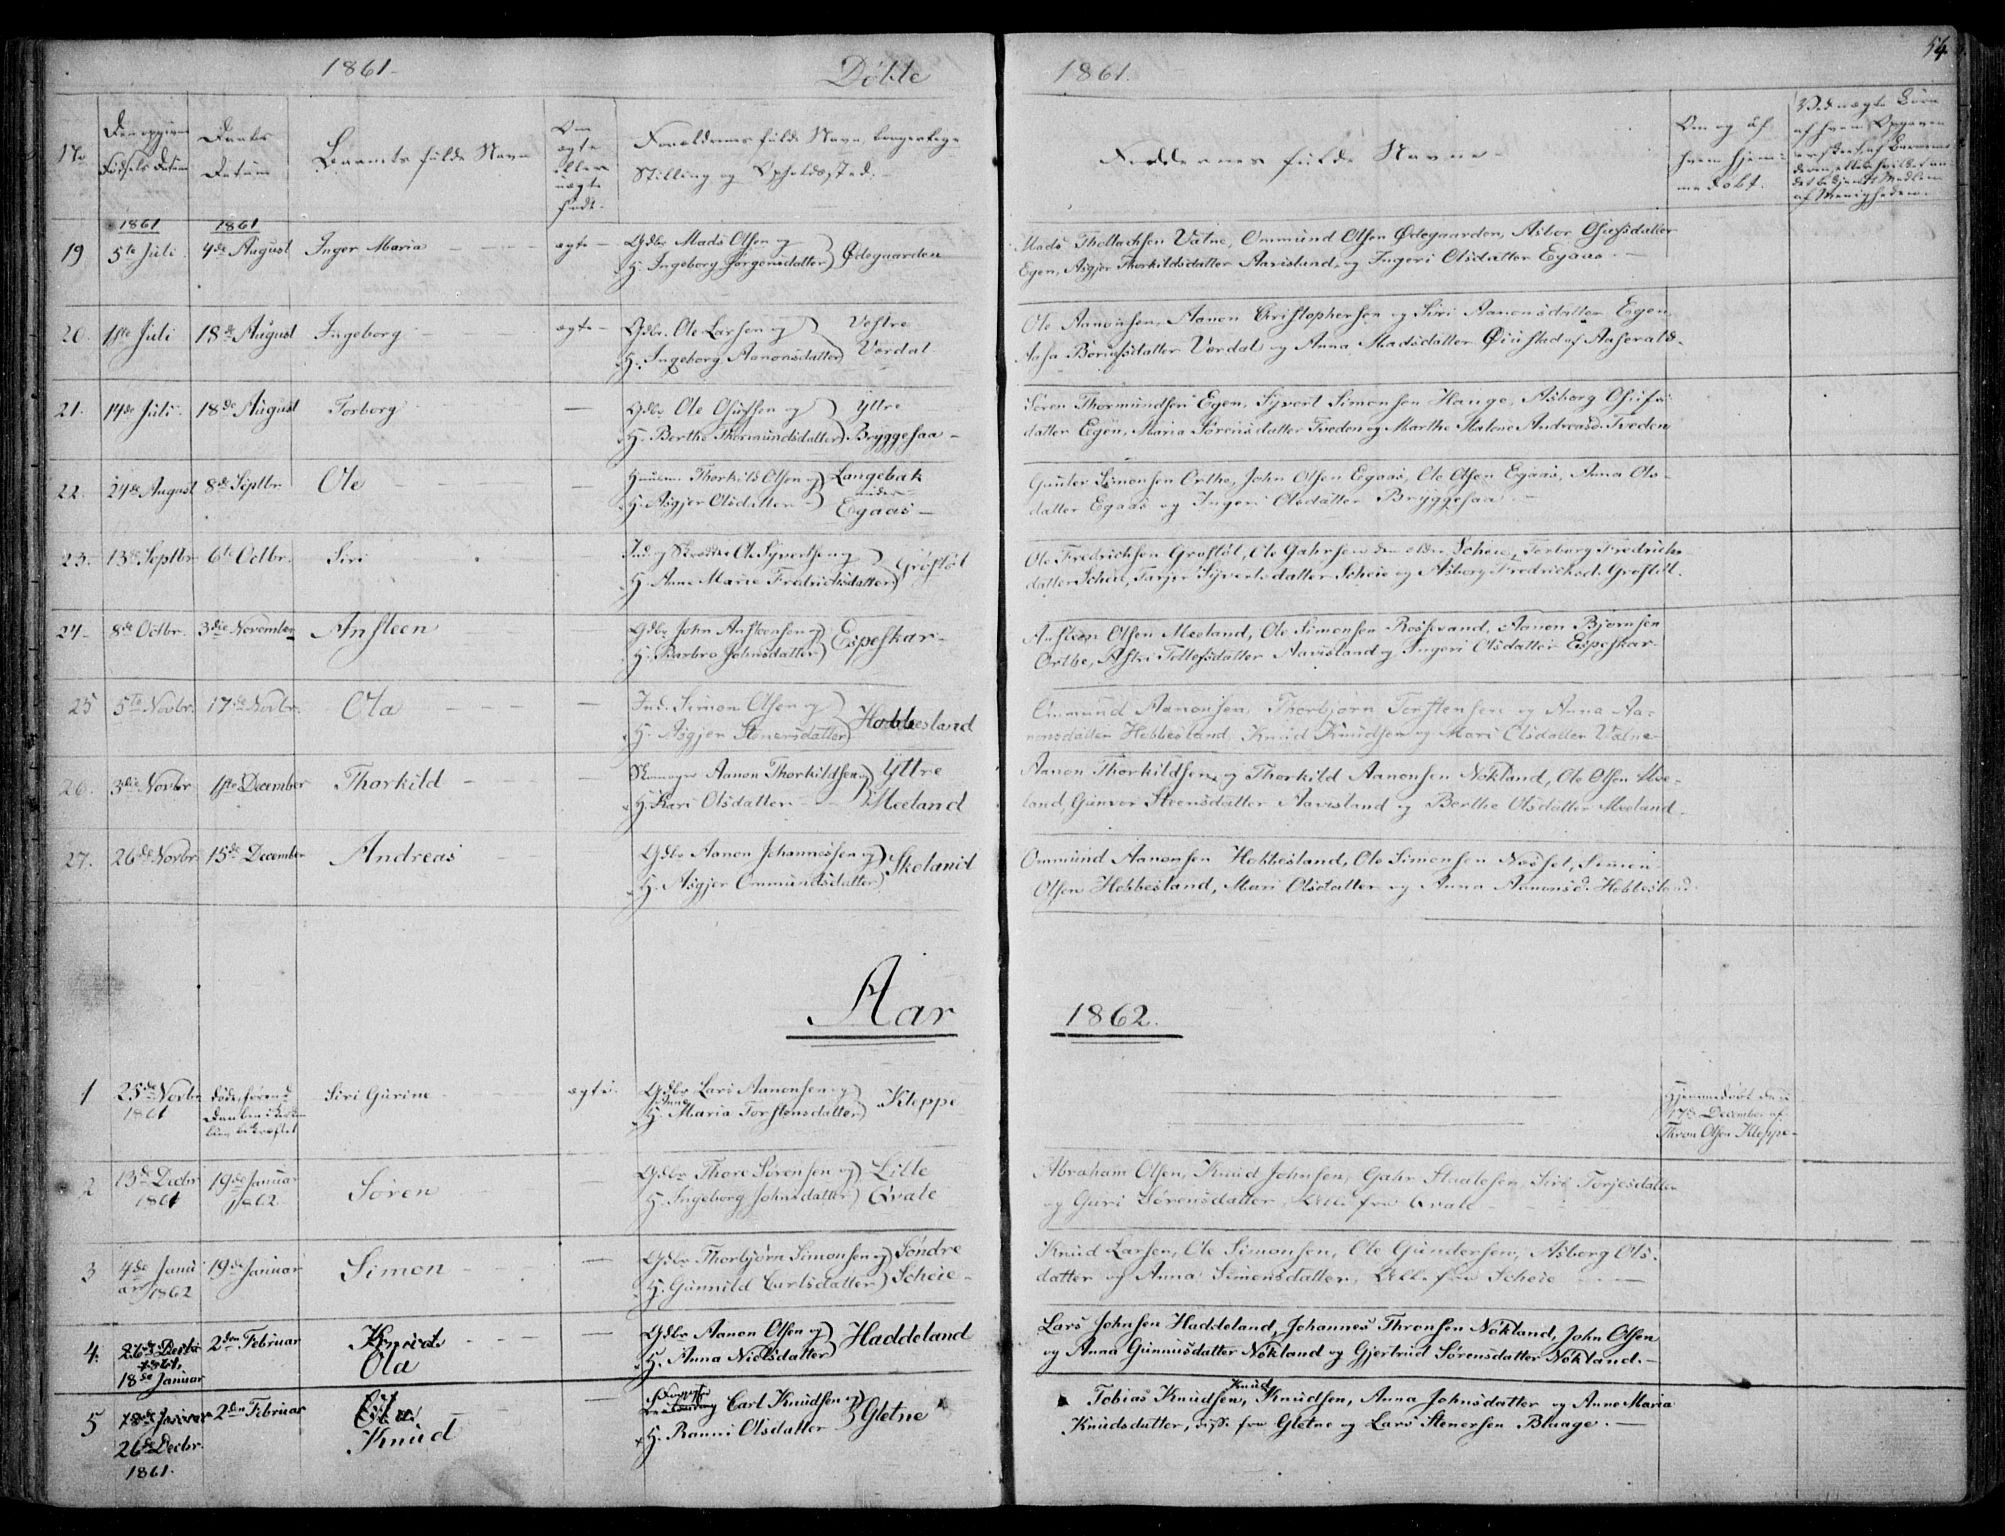 1861. Døbte 1861. 54
No
Den opgivne Fødsels Datum
Daabs Datum
Barnets fulde Navn
Om ægte eller uægte født.
Forældrenes fulde Navn, borgerlige
Stilling og Opholdssted.
Faddernes fulde Navne
Om og af hvem hjemmedøbt.
1861 1861
19 5te Juli 4de August Inger Maria ægte Gdbr Mads Olsen og
H. Ingeborg Jørgensdatter) Ødegaarden
Mads Thellachsen Vatne, Ommund Olsen Ødegaarden, Asbor Osufsdatter
Egen, Asgjer Thorkildsdatter Aavisland, og Ingeri Olsdatter Egaas.
20. 1ste Juli 18de August Ingeborg ægte Gdbr. Ole Larsen og ) Vestre
H. Ingeborg Aanonsdatter) Vordal
Ole Aanonsen, Aanon Christophersen og Siri Aanonsdatter Egen,
Aasa Børufsdatter Vordal og Anna Madsdatter Øiustad af Aaserald.
21. 14de Juli 18de August Torborg — Gdbr Ole Osufsen og ) Yttre
H. Berthe Thormundsdatter) Bryggesaa
Søren Thormundsen Egen, Syvert Simonsen Hauge, Asborg Osufs
datter Egen, Maria Sørensdatter Tveden og Marthe Malene Andreasd. Tveden
22. 24de August 8de Septbr Ole — Huusm. Thorkild Olsen og) Langebak
under
H. Asgjer Olsdatter ) Egaas
Gunder Simonsen Orthe, John Olsen Egaas, Ole Olsen Egaas, Anna Ols-
datter Egaas og Ingeri Olsdatter Bryggesaa
23. 13de Septbr 6te Octbr. Siri Ind. og Skrædder Ole Syvertsen og ) Grøstøl
H. Anne Marie Fredrichsdatter)
Ole Fredrichsen Grøstøl, Ole Gahrsen den eldre Scheie, Torborg Fredrichs
datter Scheie, Tarjer Syvertsdatter Scheie og Asborg Fredrichsd. Grøstøl.
24. 8de Octbr. 3die November Ansteen Gdbr John Ansteensen og) Espeskar
H. Barbro Johnsdatter)
Ansteen Olsen Meeland, Ole Simonsen Rossevand, Aanon Bjørnsen
Orthe, Astri Tellefsdatter Aavisland og Ingeri Olsdatter Eispeskar
25 5te Novbr. 17de Novbr. Ola — Ind. Simon Olsen og ) Hobbesland
H. Asgjer Stenersdatter)
Ommund Aanonsen, Thorbjørn Torstensen og Anna Aa-
nonsdatter Hobbesland, Knud Knudsen og Mari Olsdatter Vatne
26. 3die Novbr 1ste December Thorkild — Skomager Aanon Thorkildsen og) Yttre
H. Kari Olsdatter ) Meeland
Aanon Thorkildsen og Thorkild Aanonsen Nokland, Ole Olsen Mee-
land, Gunvor Steensdatter Aavisland og Berthe Olsdatter Meeland.
27. 26de Novbr. 15de December Andreas Gdbr Aanon Johannessen og) Skeland
H. Asgjer Ommundsdatter)
Ommund Aanonsen Hobbesland, Ole Simonsen Næsset, Simon
Olsen Hobbesland, Mari Olsdatter og Anna Aanonsd. Hobbesland.
Aar 1862.
1 25de Novbr. 1861 døde, førend Daaben i Kirken blev bekræftet Siri Gurine ægte. Gdbr Lars Aanonsen og ) Kleppe
Anne
H. Maria Torstensdatter)
Hjemmedøbt den
17de December af
Thron Olsen Kleppe
2 13de Decbr 1861 19de Januar 1862 Søren Gdbr Thore Sørensen og) Lille
H. Ingeborg Johnsdatter) Qvale
Abraham Olsen, Knud Johnsen, Gahr Staalesen, Siri Torjesdatter
og Guri Sørensdatter, Alle fra Qvale
3 4de Januar 1862 19de Januar Simon — Gdbr Thorbjørn Simonsen og) Søndre
H. Gunnild Carlsdatter) Scheie
Knud Larsen, Ole Simonsen, Ole Gundersen, Asborg Ols-
datter og Anna Simonsdatter, Alle fra Scheie
4. 26de Decbr 1861, 18de Januar 2den Februar Knud Ola — Gdbr Aanon Olsen og) Haddeland
H. Anna Nielsdatter)
Lars Johnsen Haddeland, Johannes Thronsen Nokland, John Olsen
og Anna Gunnusdatter Nokland og Gjertrud Sørensdatter Nokland.
5 18de Januar 26de Decbr. 1861. 2den Februar Ola Knud — Carl Knudsen og ) Gletne
H. Ranni Olsdatter
Knud
Tobias Knudsen, Knudsen, Anna Johnsdatter og Anne Maria
Knudsdatter, disse fra Gletne og Lars Stenersen Blaage.